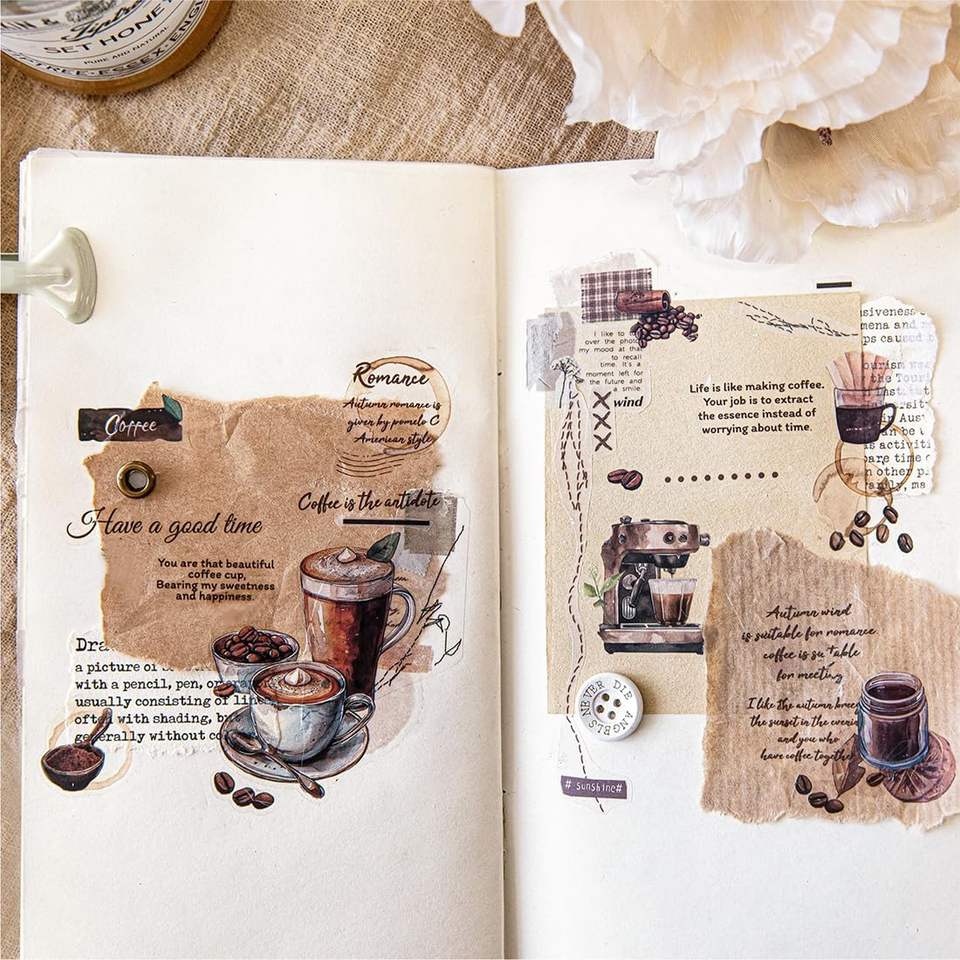 SET HONEY
PURE AND NATURAL
TREE·ESSEX·ENG
Romance
Autumn romance is
given by pomelo C
American style
Coffee
Coffee is the antidote
Have a good time
You are that beautiful
coffee cup,
Bearing my sweetness
and happiness.
Dra
a picture of
with a pencil, pen, or
usually consisting of line
often with shading, bu
generally without co
I like to
over the photo
my mood at that
to recall
time. It's a
moment left for
the future and
a smile.
wind
Life is like making coffee.
Your job is to extract
the essence instead of
worrying about time.
siveness
mena and
ps caused b
ourism
the Tour
Instit
in Aus
an be
is activiti
pare time o
n other p
arily, ma
Autumn wind
is suitable for romance
coffee is su table
for meeting
I like the autumn breez
the sunset in the evenin
and you who
have coffee together
NEVER DIE
ANGELS
# sunshine#